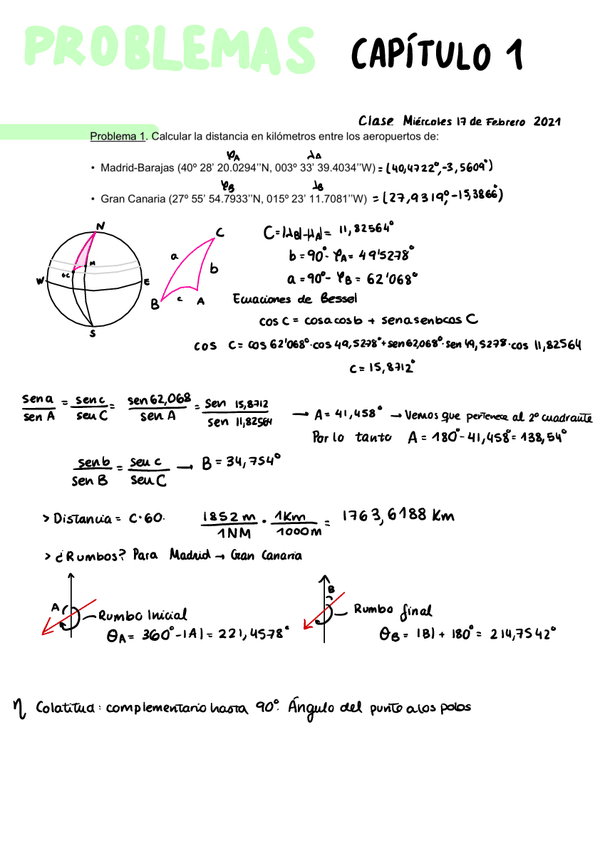 PROBLEMAS CAPÍTULO 1
Clase Miércoles 17 de Febrero 2021
Problema 1. Calcular la distancia en kilómetros entre los aeropuertos de:
φA λA
• Madrid-Barajas (40º 28' 20.0294''N, 003º 33' 39.4034''W) = (40,4722°, -3,5609°)
φB λB
• Gran Canaria (27º 55' 54.7933''N, 015º 23' 11.7081''W) = (27,9319°, -15,3866°)
N
W E
GC M
S
C
a b
B c A
C = |λB|-|λA| = 11,82564°
b = 90° - φA = 49'5278°
a = 90° - φB = 62'068°
Ecuaciones de Bessel
cos c = cos a cos b + sen a sen b cos C
cos c = cos 62'068° · cos 49,5278° + sen 62,068° · sen 49,5278 · cos 11,82564
c = 15,8712°
sen a / sen A = sen c / sen C = sen 62,068 / sen A = sen 15,8712 / sen 11,82564 → A = 41,458° → Vemos que pertenece al 2º cuadrante
Por lo tanto A = 180° - 41,458° = 138,54°
sen b / sen B = sen c / sen C → B = 34,754°
> Distancia = C·60 · 1852 m / 1NM · 1Km / 1000m = 1763,6188 Km
> ¿Rumbos? Para Madrid → Gran Canaria
A Rumbo Inicial
θA = 360° - |A| = 221,4578°
B Rumbo final
θB = |B| + 180° = 214,7542°
η Colatitud: complementario hasta 90°. Ángulo del punto a los polos